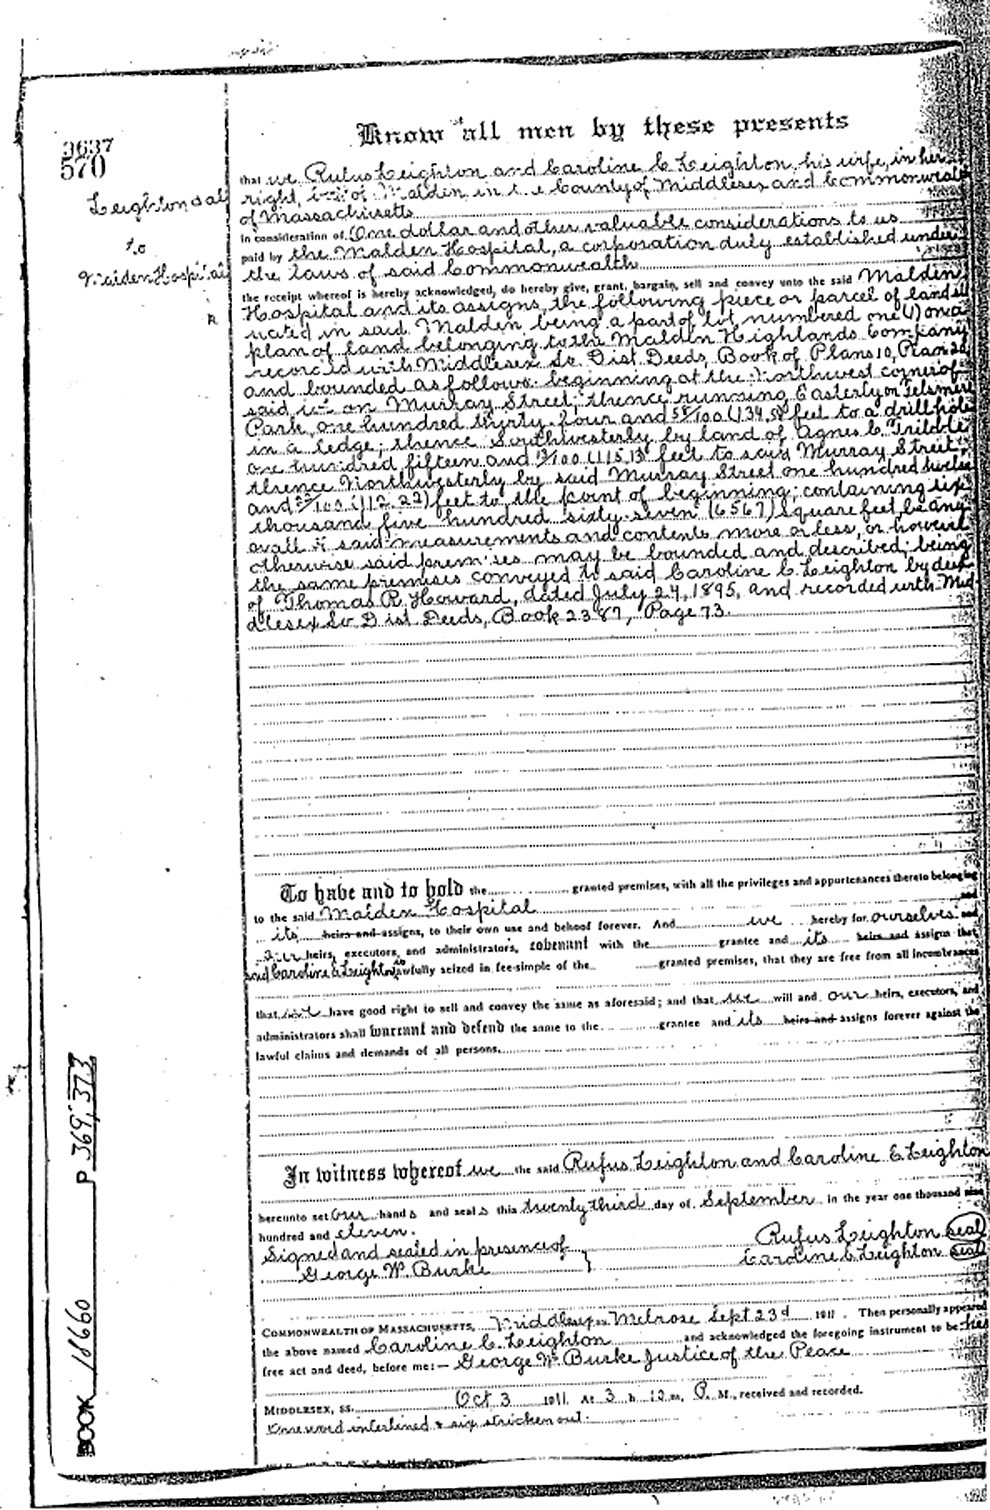 Know all men by these presents
3637
570
Leighton & al
to
Malden Hospital
R
that we Rufus Leighton and Caroline E. Leighton, his wife, in her
right, both of Malden in the County of Middlesex and Commonwealth
of Massachusetts
in consideration of One dollar and other valuable considerations to us
paid by the Malden Hospital, a corporation duly established under
the laws of said Commonwealth
the receipt whereof is hereby acknowledged, do hereby give, grant, bargain, sell and convey unto the said Malden
Hospital and its assigns, the following piece or parcel of land sit
uated in said Malden being a part of lot numbered one (1) on a
plan of land belonging to the Malden Highlands Company
recorded with Middlesex So. Dist. Deeds, Book of Plans 10, Plan
and bounded as follows: beginning at the Northwest corner of
said lot on Murray Street; thence running Easterly on Fellsmere
Park, one hundred thirty-four and 58/100 (134.58) feet to a drill hole
in a ledge; thence Southwesterly by land of Agnes C. Tribble
one hundred fifteen and 13/100 (115.13) feet to said Murray Street;
thence Northwesterly by said Murray Street one hundred twelve
and 22/100 (112.22) feet to the point of beginning; containing six
thousand five hundred sixty-seven (6567) square feet, be any
or all of said measurements and contents more or less, or however
otherwise said premises may be bounded and described; being
the same premises conveyed to said Caroline E. Leighton by deed
of Thomas R. Howard, dated July 24, 1895, and recorded with Mid-
dlesex So Dist Deeds, Book 2387, Page 73.
To have and to hold the granted premises, with all the privileges and appurtenances thereto belonging
to the said Malden Hospital and
its heirs and assigns, to their own use and behoof forever. And we hereby for ourselves and
our heirs, executors, and administrators, covenant with the grantee and its heirs and assigns that
said Caroline E. Leighton is lawfully seized in fee-simple of the granted premises, that they are free from all incumbrances
that we have good right to sell and convey the same as aforesaid; and that we will and our heirs, executors, and
administrators shall warrant and defend the same to the grantee and its heirs and assigns forever against the
lawful claims and demands of all persons.
In witness whereof we the said Rufus Leighton and Caroline E. Leighton
hereunto set our hands and seals this twenty third day of September in the year one thousand nine
hundred and eleven.
Signed and sealed in presence of Rufus Leighton seal
George W. Burke } Caroline E. Leighton seal
COMMONWEALTH OF MASSACHUSETTS, Middlesex ss Melrose Sept 23d 1911. Then personally appeared
the above named Caroline E. Leighton and acknowledged the foregoing instrument to be her
free act and deed, before me:— George W. Burke Justice of the Peace
MIDDLESEX, SS. Oct 3 1911 At 3 h 12 m, P. M., received and recorded.
One word interlined & six stricken out.
BOOK 16660 P 369, 373